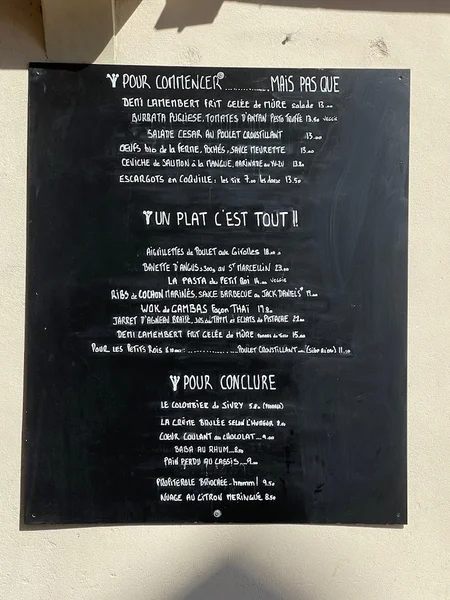 POUR COMMENCER ............ MAIS PAS QUE
DEMI CAMEMBERT FRIT GELÉE DE MÛRE salade 13.00
BURRATA PUGLIESE, TOMATES D'ANTAN PESTO TRUFFE 13.50 veggie
SALADE CESAR AU POULET CROUSTILLANT 13.00
OEUFS bio de la FERME, POCHÉS, SAUCE MEURETTE
CEVICHE de SAUMON à la MANGUE, MARINADE au YUZU 13.80
ESCARGOTS en COQUILLE: les six 7.00 les douze 13.50
UN PLAT C'EST TOUT !!
AIGUILLETTES de POULET aux GIROLLES 18.00
BAVETTE D'ANGUS 300g AU ST MARCELLIN 23.00
LA PASTA du PETIT ROI 14.00 veggie
RIBS de COCHON MARINÉS, SAUCE BARBECUE au JACK DANIEL'S
WOK de GAMBAS FAÇON THAÏ 17.80
JARRET D'AGNEAU BRAISÉ, JUS AU THYM et ECLATS de PISTACHE
DEMI CAMEMBERT FRIT GELÉE DE MÛRE 15.00
POUR LES PETITS ROIS ............ POULET CROUSTILLANT
POUR CONCLURE
LE COLOMBIER de SIVRY
LA CRÈME BRULÉE SELON L'HUMEUR
COEUR COULANT au CHOCOLAT...9.00
BABA AU RHUM...
PAIN PERDU AU CASSIS...9.00
PROFITEROLE BRIOCHÉE..hmmm! 9.50
NUAGE AU CITRON MERINGUÉ 8.50